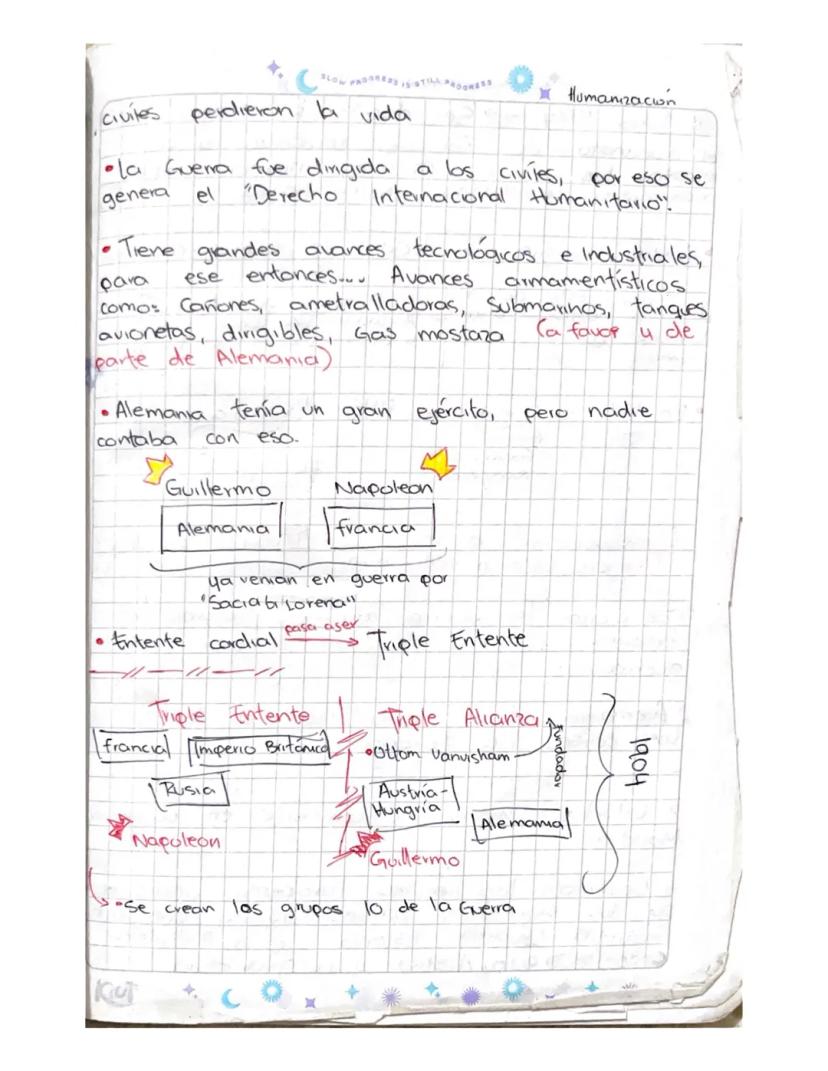 SLOW PROGRESS IS STILL PROGRESS
Humanización
civiles perdieron la vida
•la Guerra fue dirigida a los civiles, por eso se
genera el "Derecho Internacional Humanitario".
• Tiene grandes avances tecnológicos e Industriales,
para ese entonces... Avances armamentísticos
como: Cañones, ametralladoras, Submarinos, tanques
avionetas, dirigibles, Gas mostaza (a favor y de
parte de Alemania)
• Alemania tenía un gran ejército, pero nadie
contaba con eso.
Guillermo Napoleon
Alemania francia
ya venian en guerra por
Lorena"
• Entente cordial pasa a ser Triple Entente
Triple Entente Triple Alianza
francia Imperio Británico •Ottom Vanvisham fundador
Rusia Austria-
Hungría
Alemania
1904
Napoleon
Guillermo
•Se crean los grupos 10 de la Guerra